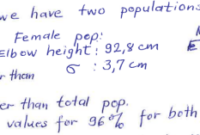 we have two populations
Female pop:
Elbow height: 92,8 cm
E
r than
σ : 3,7 cm
er than total pop.
values for 96% for both